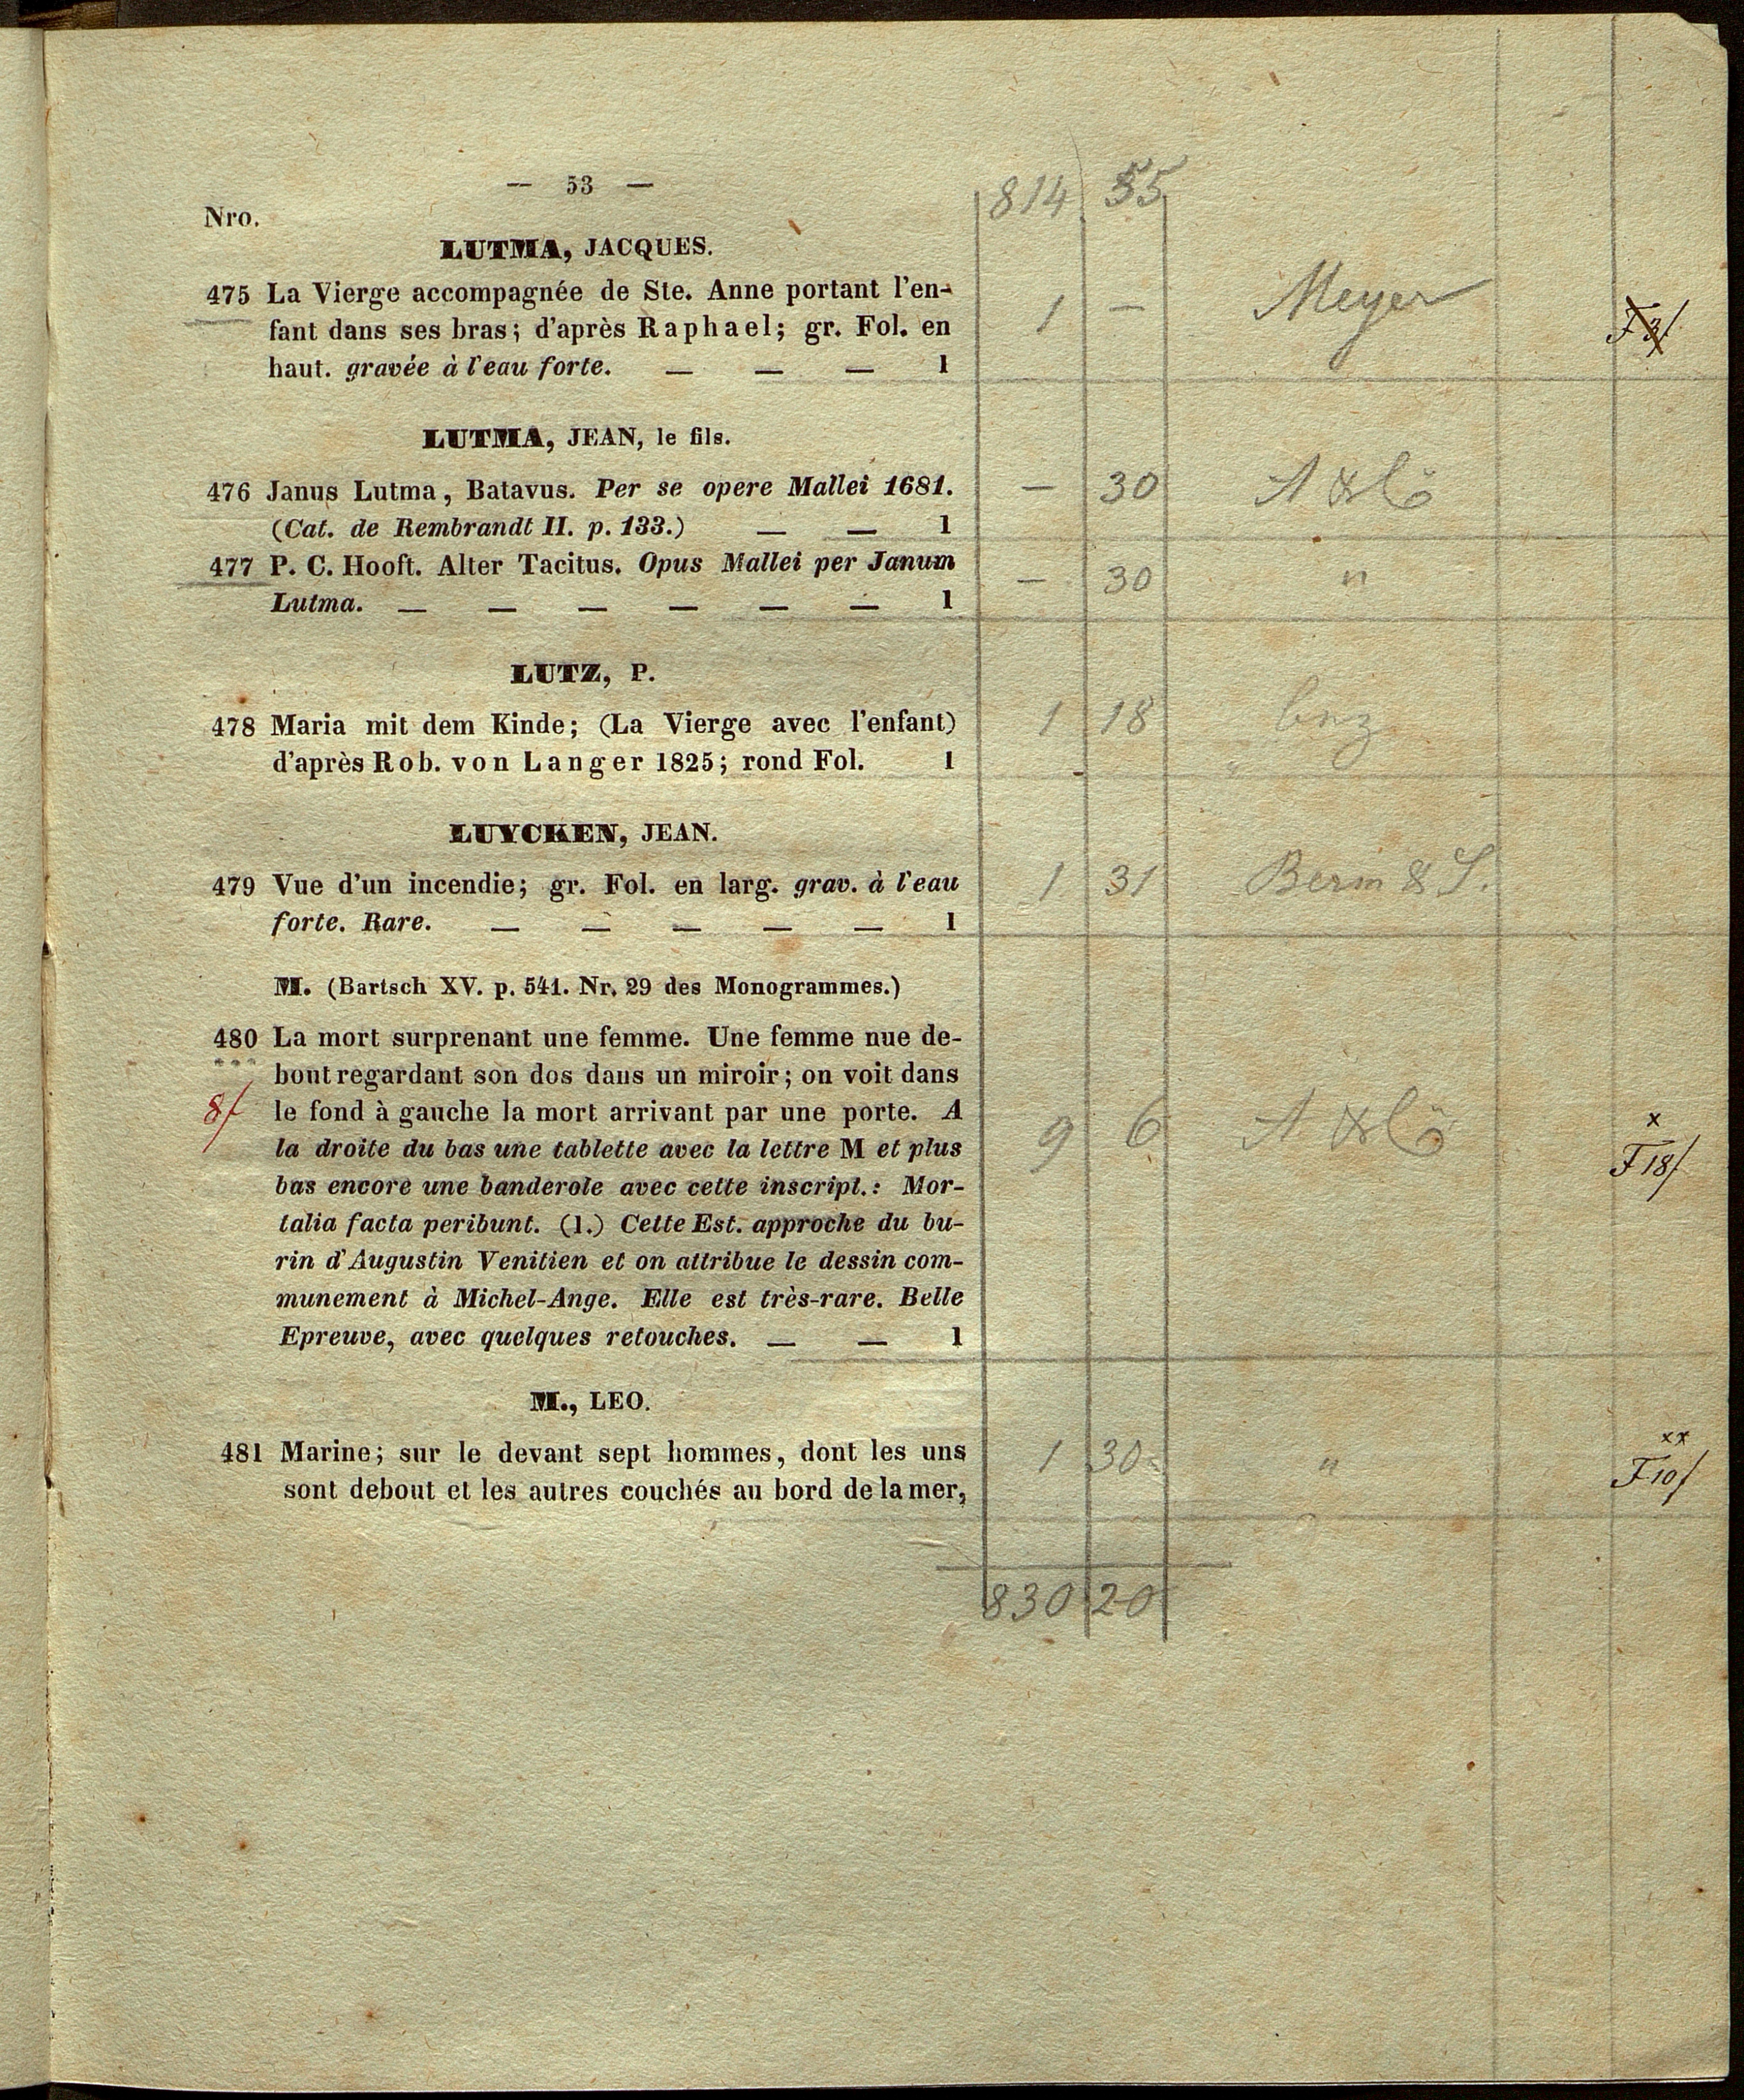 — 53 —
814 55
Nro.
LUTMA, JACQUES.
475 La Vierge accompagnée de Ste. Anne portant l'en-
fant dans ses bras; d'après Raphael; gr. Fol. en
haut. gravée à l'eau forte. — — — 1
1 — Meyer
F 3/
LUTMA, JEAN, le fils.
476 Janus Lutma, Batavus. Per se opere Mallei 1681.
(Cat. de Rembrandt II. p. 133.) — — 1
— 30 A & Co
477 P. C. Hooft. Alter Tacitus. Opus Mallei per Janum
Lutma. — — — — — — 1
— 30 "
LUTZ, P.
478 Maria mit dem Kinde; (La Vierge avec l'enfant)
d'après Rob. von Langer 1825; rond Fol. 1
1 18
LUYCKEN, JEAN.
479 Vue d'un incendie; gr. Fol. en larg. grav. à l'eau
forte. Rare. — — — — — 1
1 31 & S.
M. (Bartsch XV. p. 541. Nr. 29 des Monogrammes.)
480 La mort surprenant une femme. Une femme nue de-
bout regardant son dos dans un miroir; on voit dans
8f le fond à gauche la mort arrivant par une porte. A
la droite du bas une tablette avec la lettre M et plus
bas encore une banderole avec cette inscript.: Mor-
talia facta peribunt. (1.) Cette Est. approche du bu-
rin d'Augustin Venitien et on attribue le dessin com-
munement à Michel-Ange. Elle est très-rare. Belle
Epreuve, avec quelques retouches. — — 1
9 6 A & Co
x
F 18/
M., LEO.
481 Marine; sur le devant sept hommes, dont les uns
sont debout et les autres couchés au bord de la mer,
1 30 "
xx
F 10/
830 20